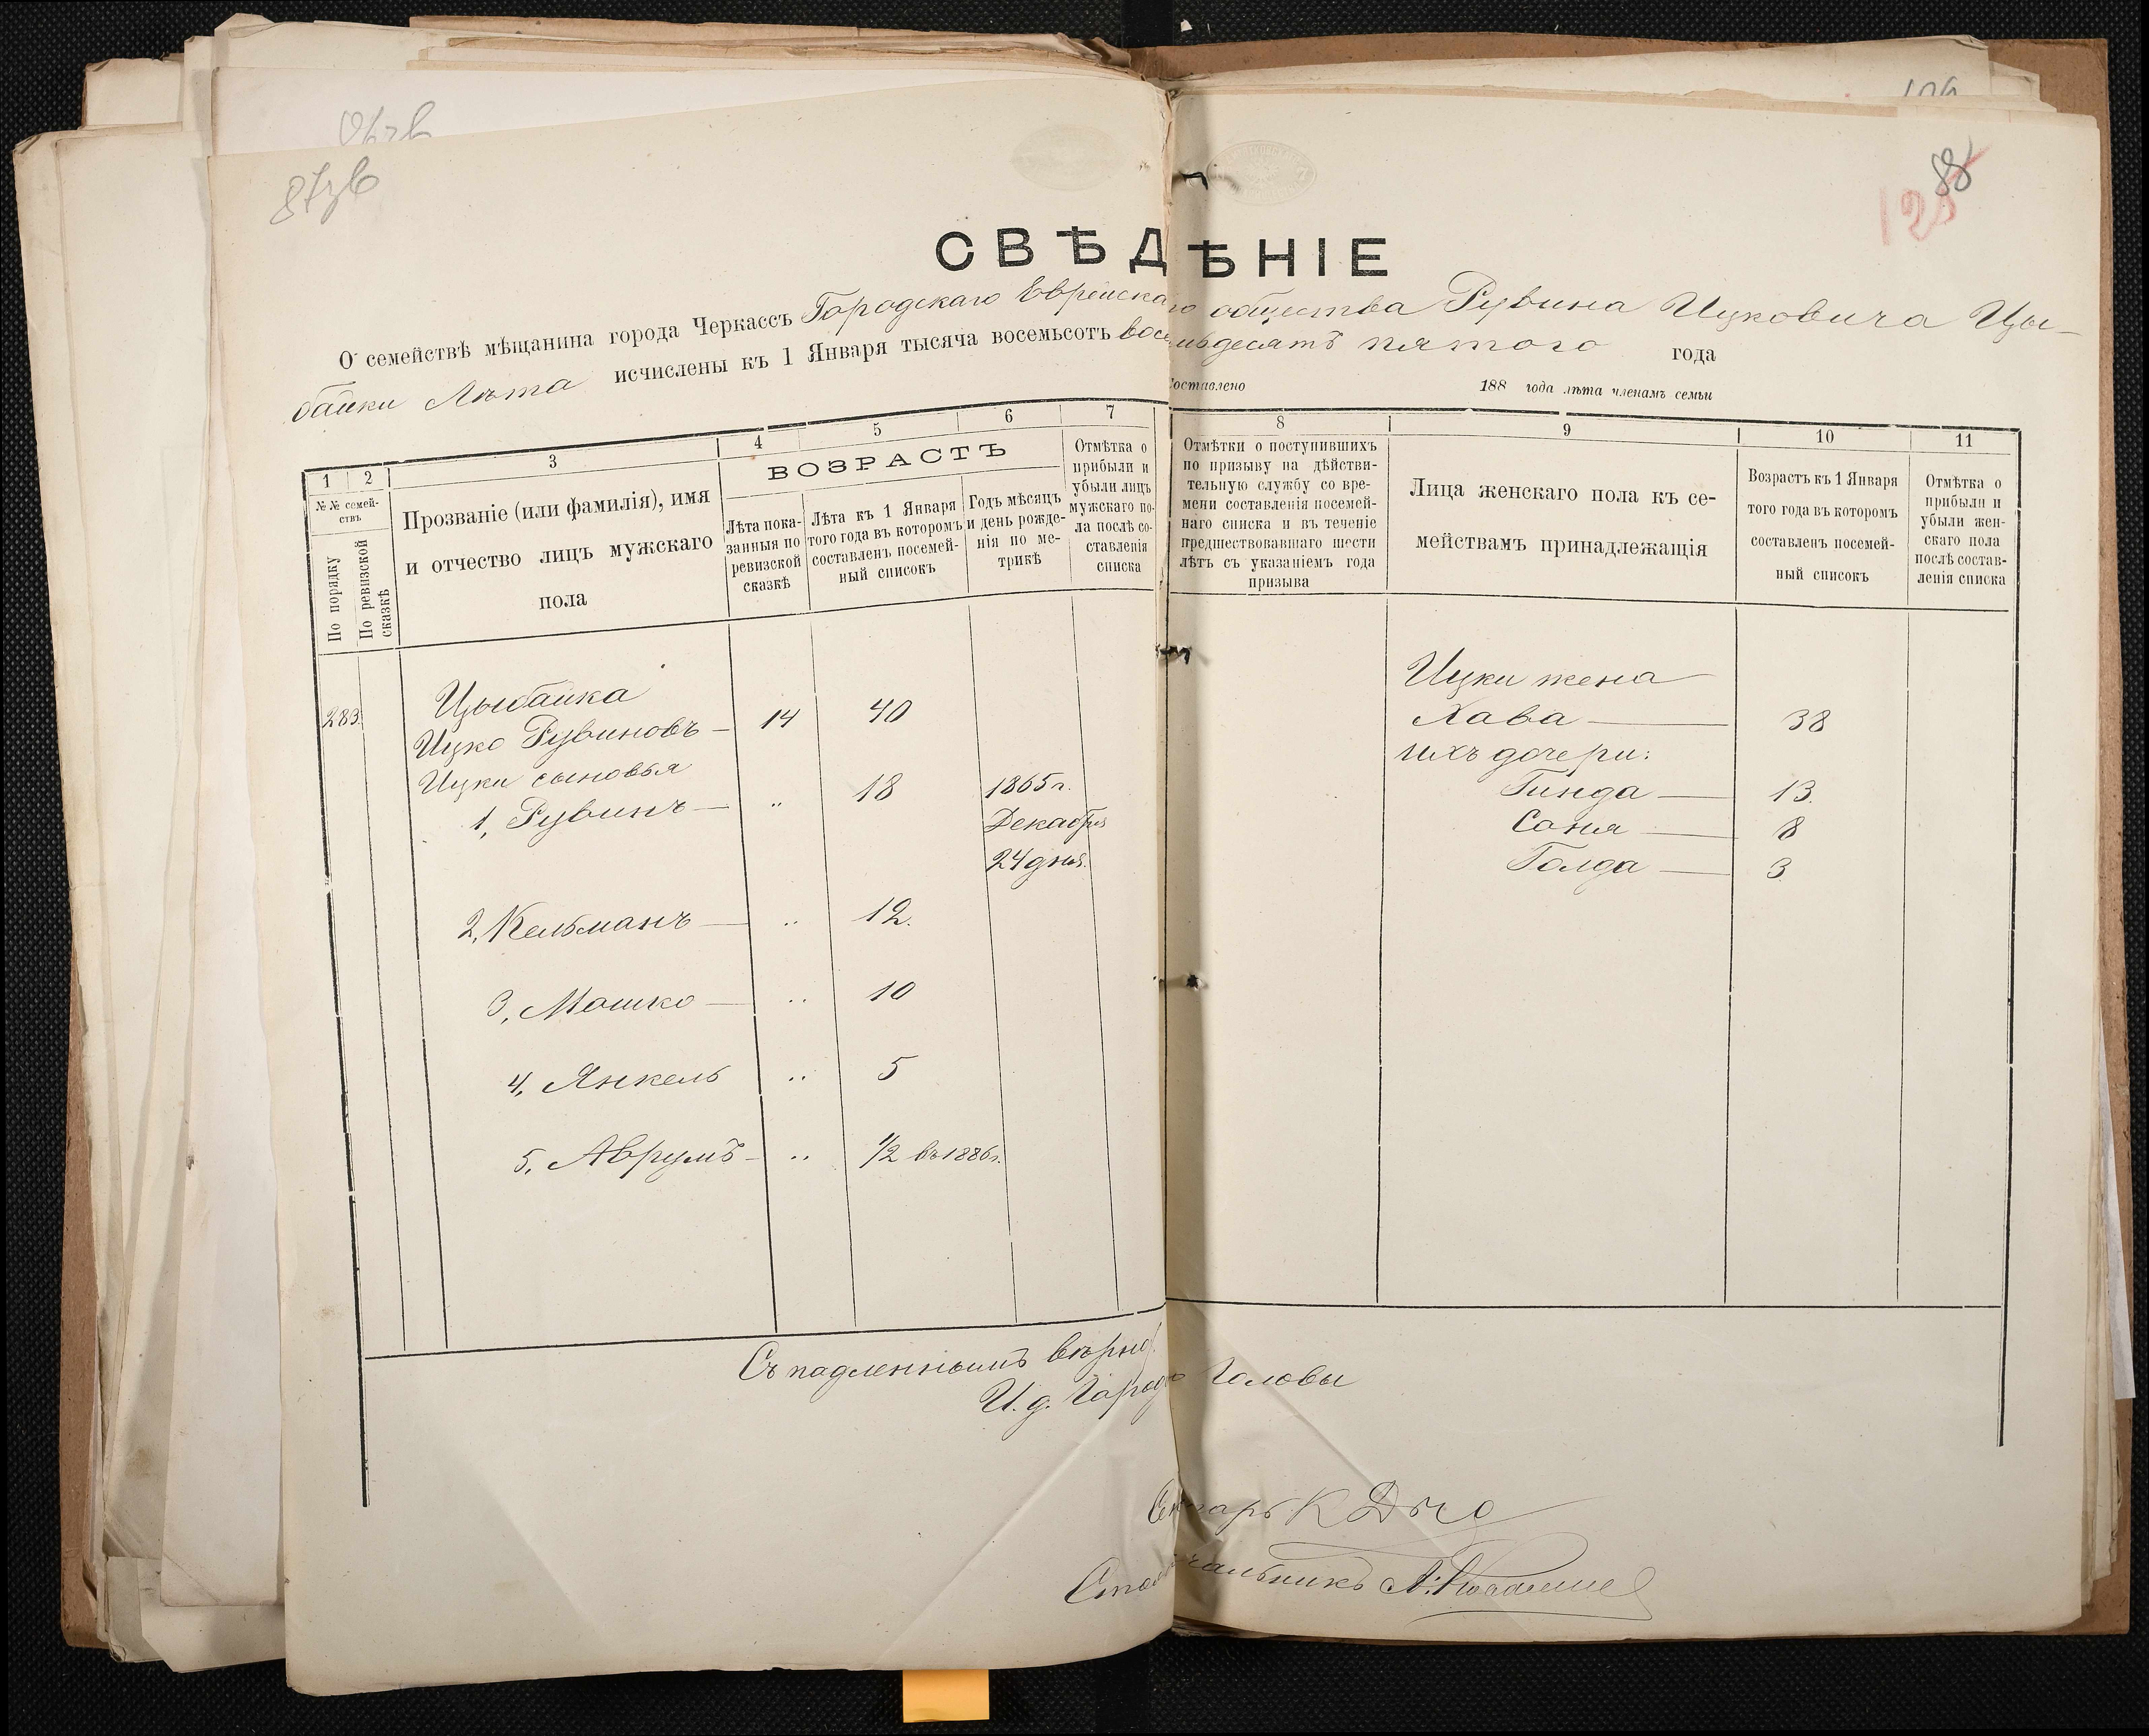 87зв
88
125
СВѢДѢНІЕ
О семействѣ мѣщанина города Черкассъ Городскаго Еврейскаго общества Рувина Ицковича Цы-
байки Лѣта исчислены къ 1 Января тысяча восемьсотъ восемьдесятъ пятого года
Составлено 188 года лѣта членамъ семьи
1 2 3 4 5 6 7 8 9 10 11
№№ семействъ
По порядку
По ревизской сказкѣ
Прозваніе (или фамилія), имя
и отчество лицъ мужскаго
пола
ВОЗРАСТЪ
Лѣта пока-
занныя по
ревизской
сказкѣ
Лѣта къ 1 Января
того года въ котором
составленъ посемей-
ный списокъ
Годъ мѣсяцъ
и день рожде-
нія по ме-
трикѣ
Отмѣтка о
прибыли и
убыли лицъ
мужскаго по-
ла послѣ со-
ставленія
списка
Отмѣтки о поступившихъ
по призыву на дѣйстви-
тельную службу со вре-
мени составленія посемей-
наго списка и въ теченіе
предшествовавшаго шести
лѣтъ съ указаніемъ года
призыва
Лица женскаго пола къ се-
мействамъ принадлежащія
Возрастъ къ 1 Января
того года въ котомъ
составленъ посемей-
ный списокъ
Отмѣтка о
прибыли и
убыли жен-
скаго пола
послѣ состав-
ленія списка
283.
Цыбайка
Ицко Рувиновъ — 14 40
Ицки сыновья
1, Рувинъ — „ 18 1865 г.
Декабря
24 дня.
2, Кельманъ — „ 12.
3, Мошко — „ 10
4, Янкель „ 5
5, Аврумъ — „ 1/2 въ 1886 г.
Ицки жена
Хава — 38
ихъ дочери:
Гинда — 13.
Соня — 8
Голда — 3
Съ подленнымъ вѣрно:
И. д. Город Головы
Секретарь К
Столоначальникъ А.